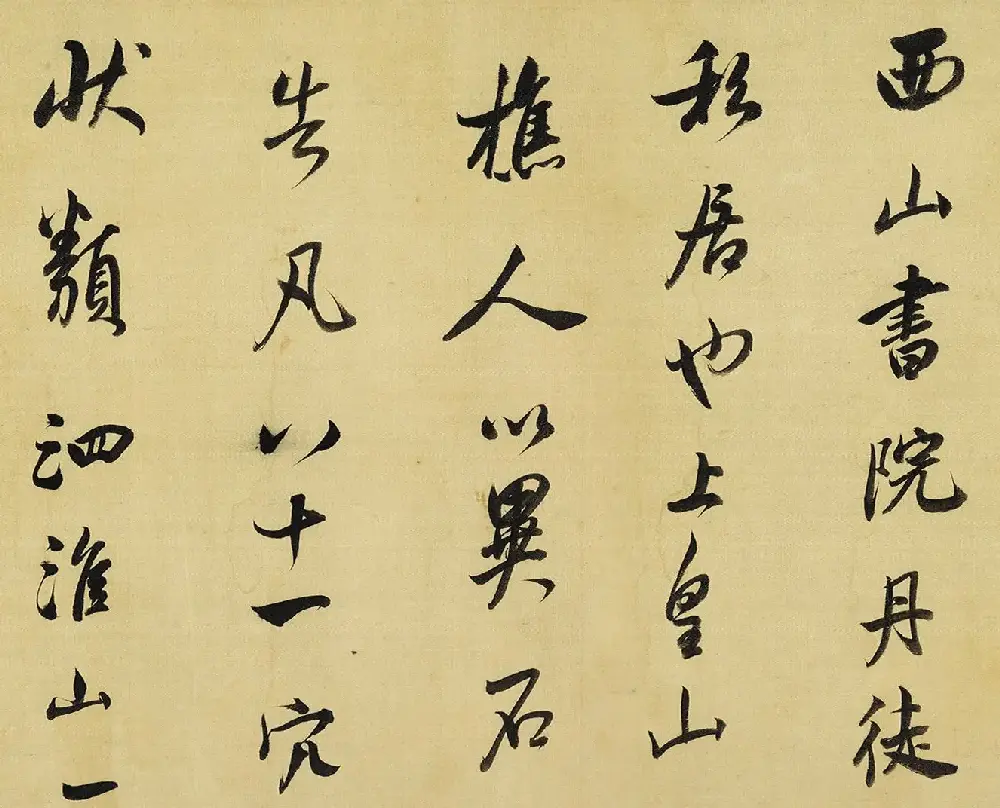 西山書院丹徒
私居也上皇山
樵人以異石
告凡八十一穴
狀類泗淮山一